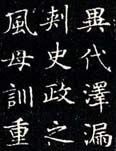 異代澤漏
刺史政之
風母訓重